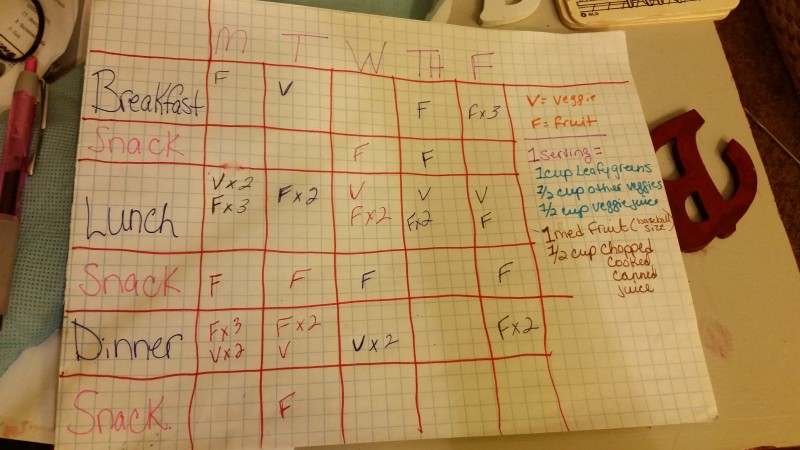 M T W TH F
Breakfast F V F Fx3
Snack F F
Lunch Vx2 Fx2 V V V
Fx3 Fx2 Fx2 F
Snack F F F F
Dinner Fx3 Fx2 Vx2 Fx2
Vx2 V
Snack F
V = Veggie
F = fruit
1 serving =
1 cup leafy greens
1/2 cup other veggies
1/2 cup veggie juice
1 med fruit (baseball size)
1/2 cup chopped
cooked
canned
juice